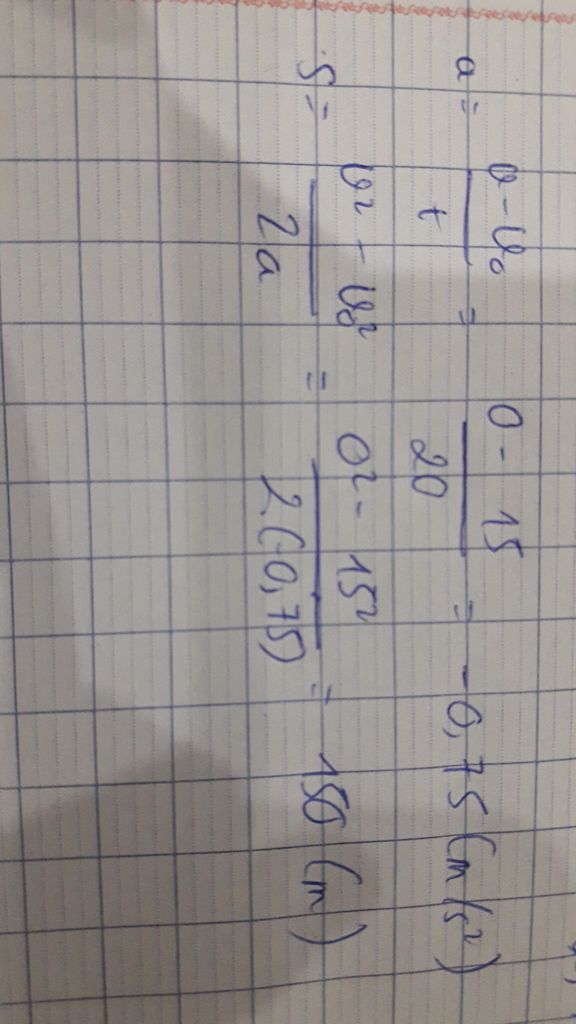 a = \frac{v - v_0}{t} = \frac{0 - 15}{20} = -0,75 (m/s²)
S = \frac{v² - v_0²}{2a} = \frac{0² - 15²}{2(-0,75)} = 150 (m)